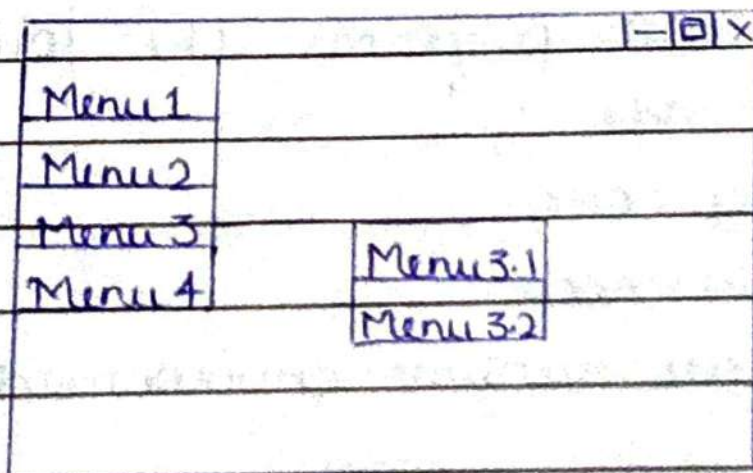 Menu 1
Menu 2
Menu 3
Menu 4
Menu 3.1
Menu 3.2